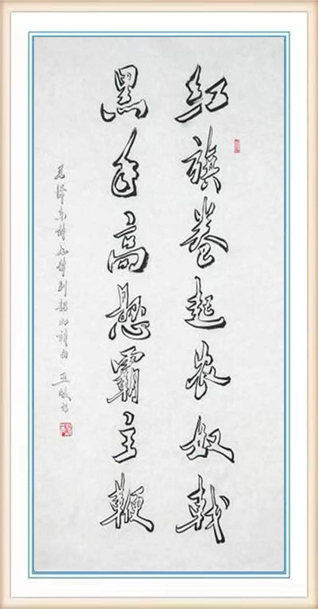 红旗卷起农奴戟
黑手高懸霸主鞭
毛泽东诗七律到韶山诗句